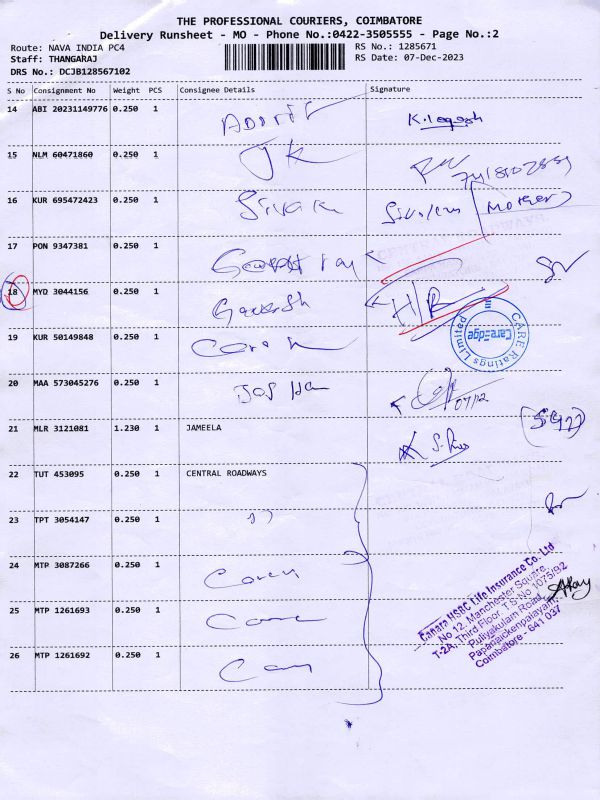 THE PROFESSIONAL COURIERS, COIMBATORE
Delivery Runsheet - MO - Phone No.:0422-3505555 - Page No.:2
Route: NAVA INDIA PC4
RS No.: 1285671
Staff: THANGARAJ
RS Date: 07-Dec-2023
DRS No.: DCJB128567102
S No Consignment No Weight PCS Consignee Details Signature
14 ABI 20231149776 0.250 1 K.logesh
15 NLM 60471860 0.250 1 JK
16 KUR 695472423 0.250 1 (Mother)
17 PON 9347381 0.250 1
18 MYD 3044156 0.250 1 Ganesh
19 KUR 50149848 0.250 1
CARE Ratings Limited
CareEdge
20 MAA 573045276 0.250 1 07/12
21 MLR 3121081 1.230 1 JAMEELA
22 TUT 453095 0.250 1 CENTRAL ROADWAYS
23 TPT 3054147 0.250 1 "
24 MTP 3087266 0.250 1
25 MTP 1261693 0.250 1
26 MTP 1261692 0.250 1
Canara HSBC Life Insurance Co. Ltd
No 12, Manchester Square,
T-2A, Third Floor, T.S. No 1075/92
Puliyakulam Road,
Papanaickenpalayam,
Coimbatore - 641 037